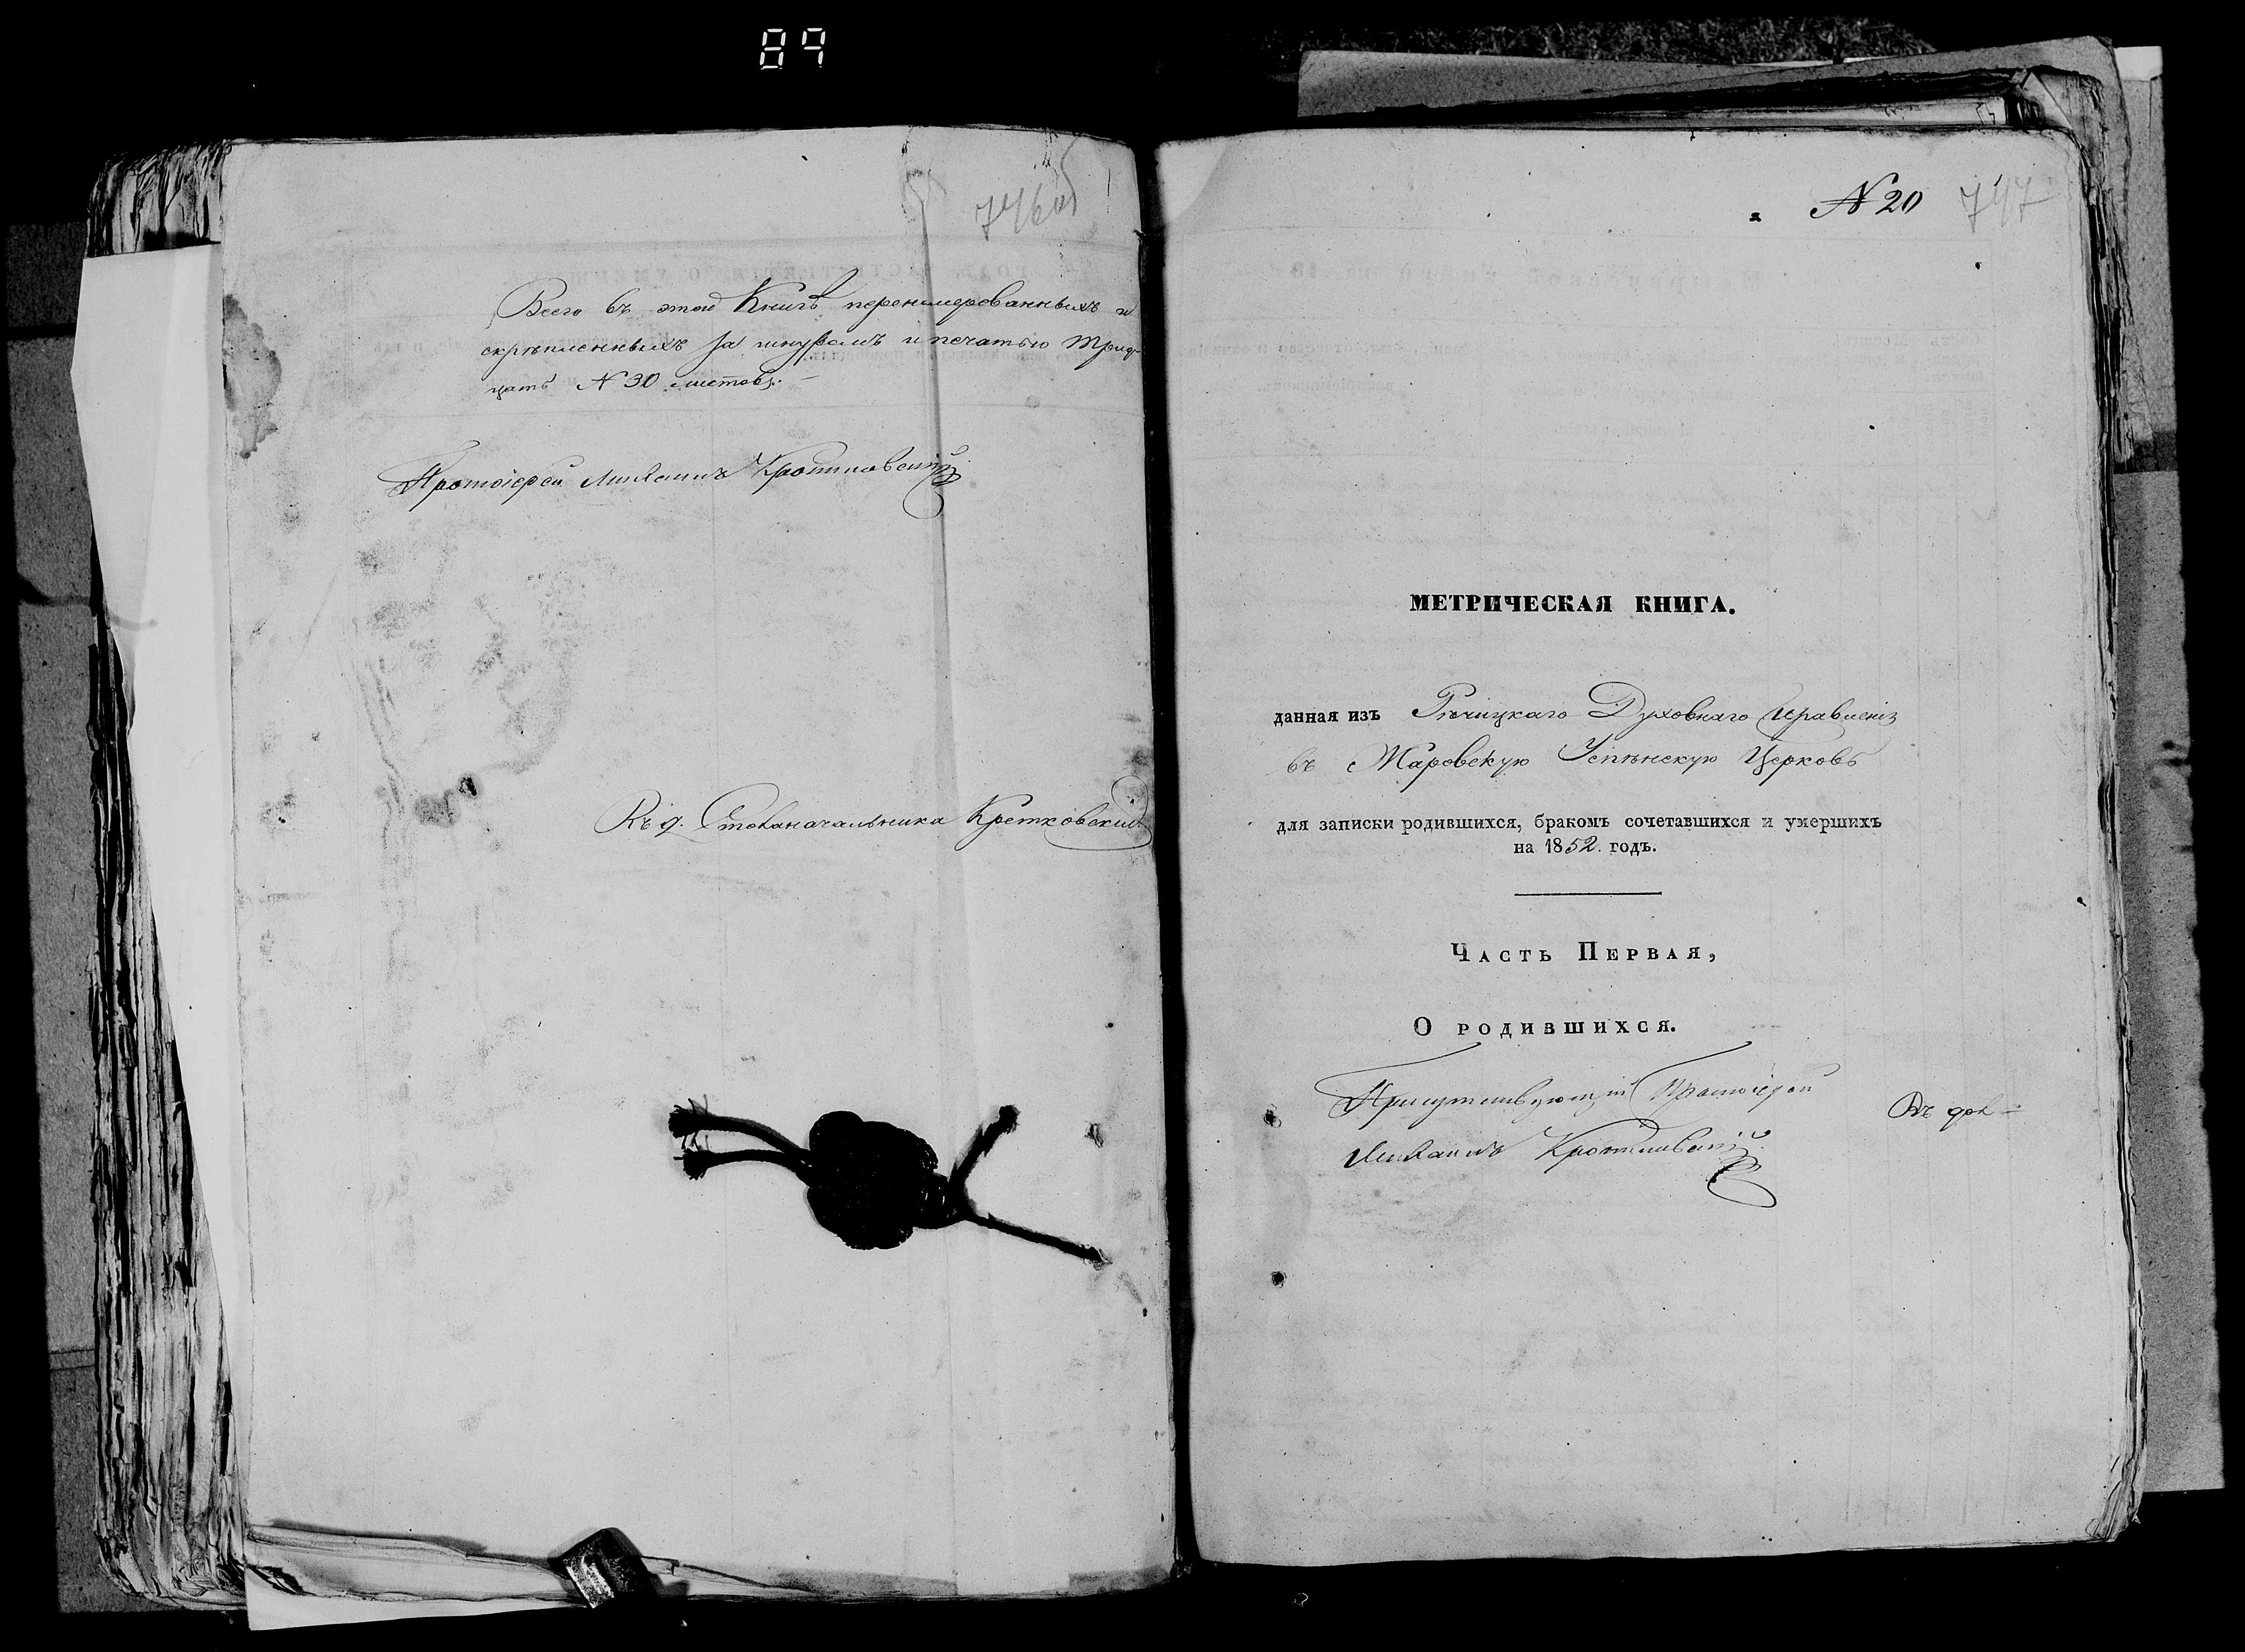 89
746об
Всего въ этой Книгѣ перенумерованныхъ и
скрѣпленныхъ за шнуромъ и печатью трид-
цать N 30 листовъ.
Протоіерей Михаилъ
Столоначальника
N 20 747
МЕТРИЧЕСКАЯ КНИГА.
данная изъ Рѣчицкаго Духовнаго Правленія
въ Успѣнскую Церковь
для записки родившихся, бракомъ сочетавшихся и умершихъ
на 1852. годъ.
Часть Первая,
О родившихся.
Присутствующій Протоіерей
Михаилъ